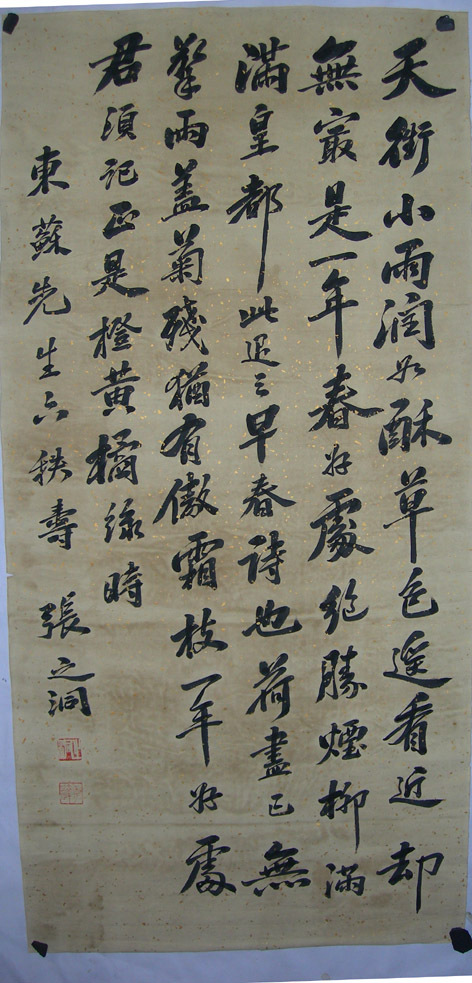 天街小雨潤如酥草色遥看近却
無最是一年春好處絶勝煙柳滿
滿皇都此退之早春詩也荷盡已無
擎雨盖菊殘猶有傲霜枝一年好處
君須記正是橙黄橘緑時
東蘇先生六秩壽 張之洞